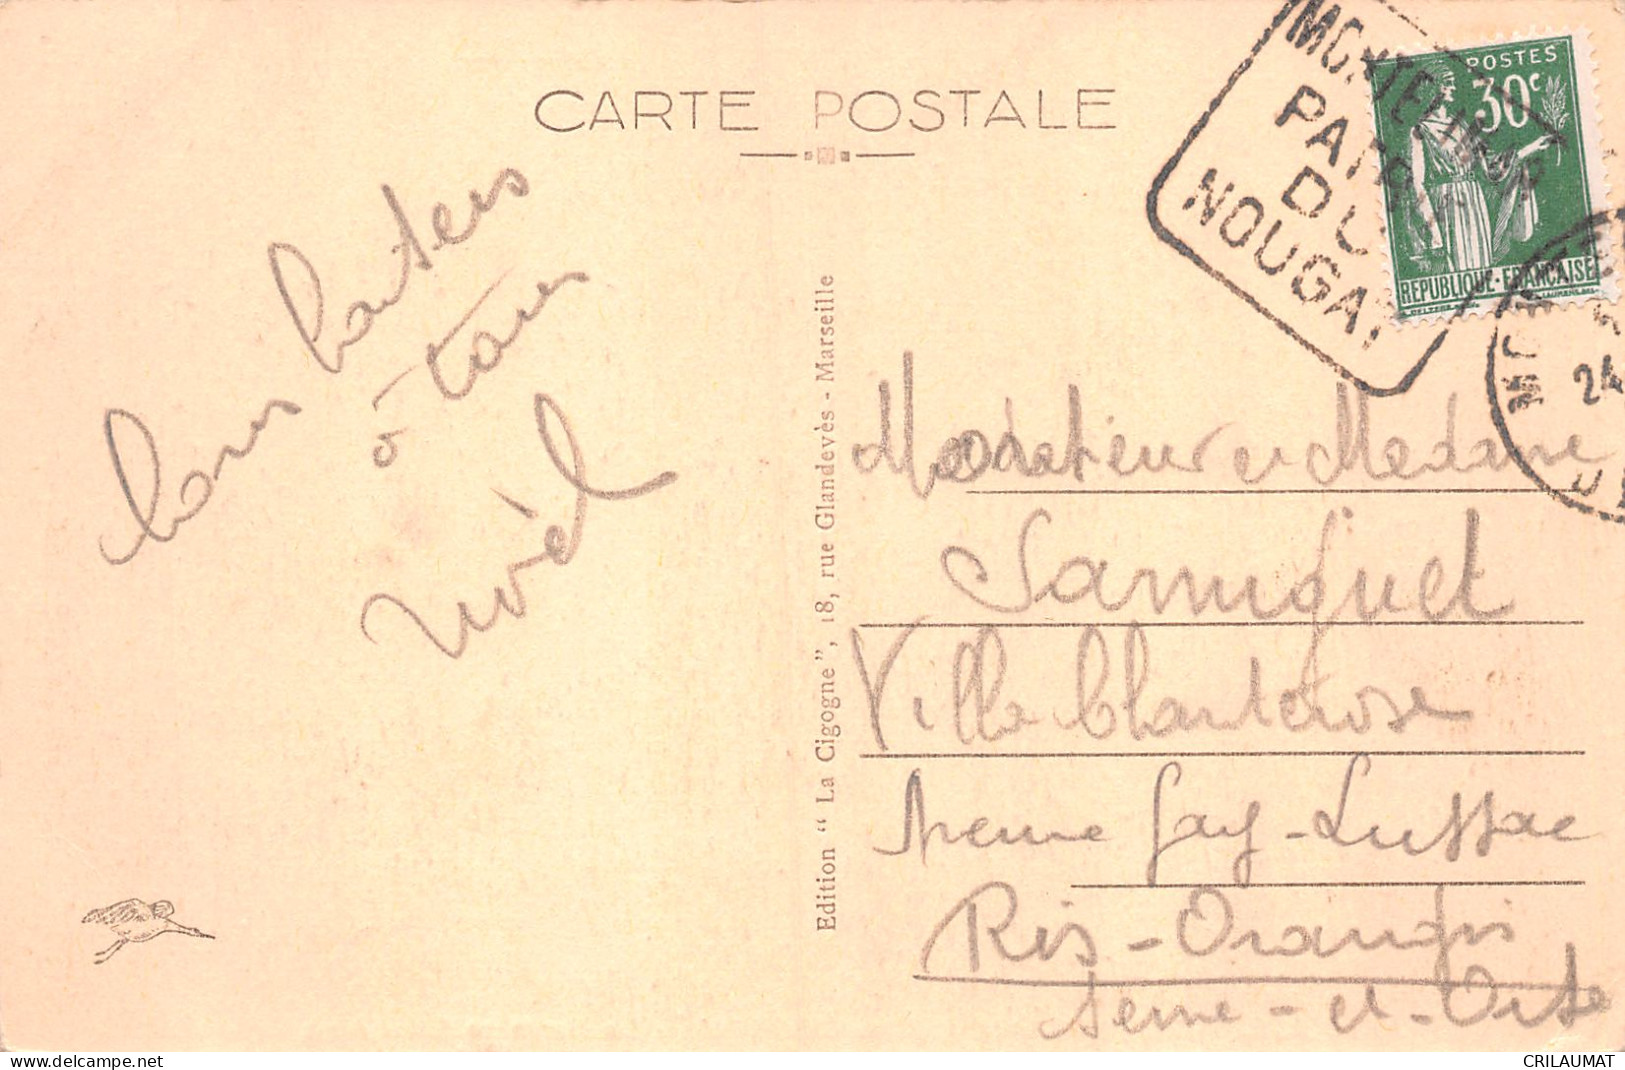 CARTE POSTALE
MONTELIMAR
PATRIE
DU
NOUGAT
POSTES
30c
REPUBLIQUE·FRANÇAISE
24
Bons baisers
à tous
Noël
Edition “ La Cigogne ”, 18, rue Glandevès - Marseille
et Madame
Samiguet
Villa Chanterose
Avenue Gay-Lussac
Ris-Orangis
Seine-et-Oise
CRILAUMAT